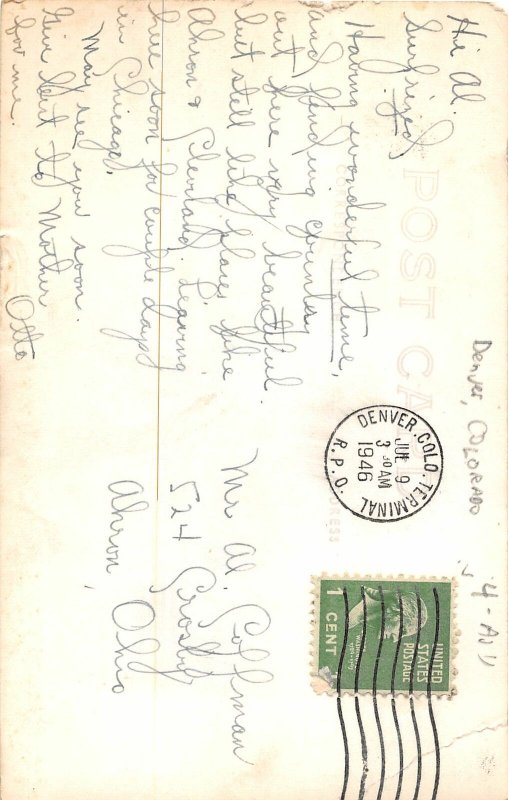 Hi Al.
Surprized.
Having wonderful time,
and finding country
out here very beautiful.
but still like places like
Akron & Cleveland. Leaving
here soon for couple days
in Chicago,
May see you soon.
Give best to Mother
for me.
Otto
POST CARD
Denver, COLORADO
DENVER, COLO. TERMINAL
JUL 9
3 30 AM
1946
R.P.O.
UNITED
STATES
POSTAGE
1 CENT
Mr Al. Coffman
524 Crosby
Akron, Ohio